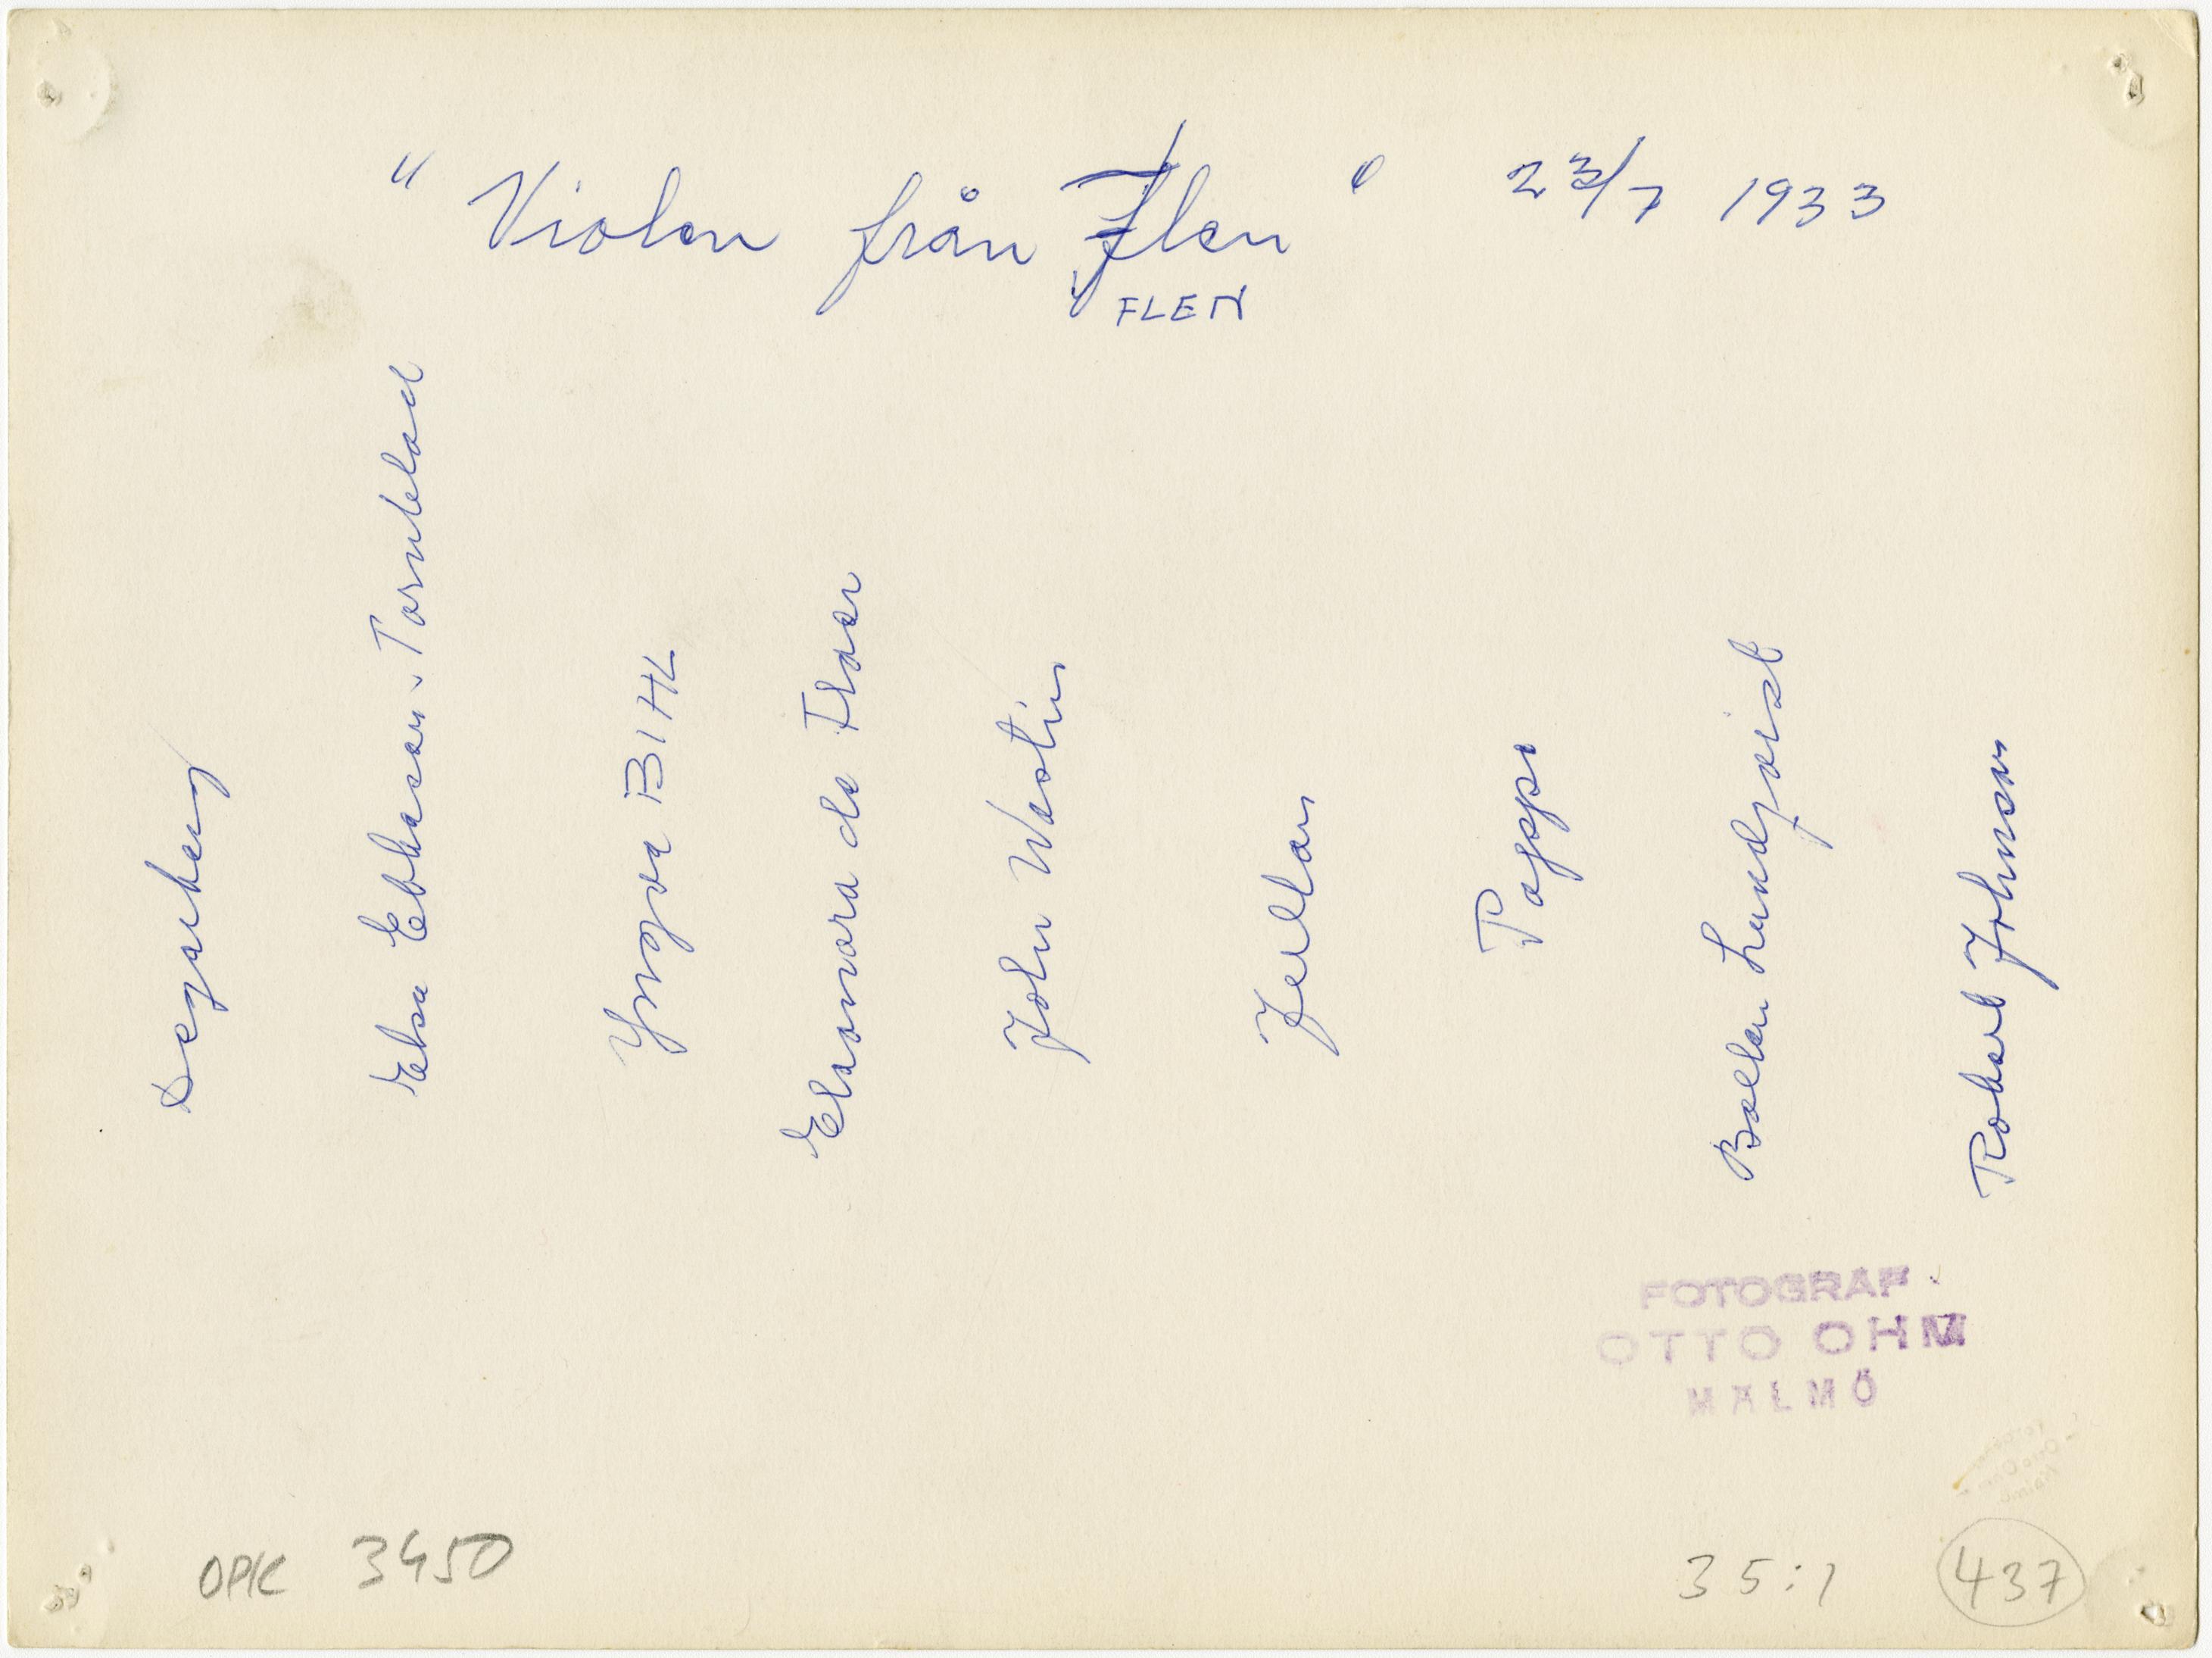 "Violen från Flen" 23/7 1933
FLEN
Degerberg
Elsa Ebbesen-Tornblad
Yngve BIHL
Eleonora de Floer
John Westin
Jellan
Poppe
Boellen Lundqvist
Robert Johnson
FOTOGRAF
OTTO OHM
MALMÖ
OPK 3450
35:1
437